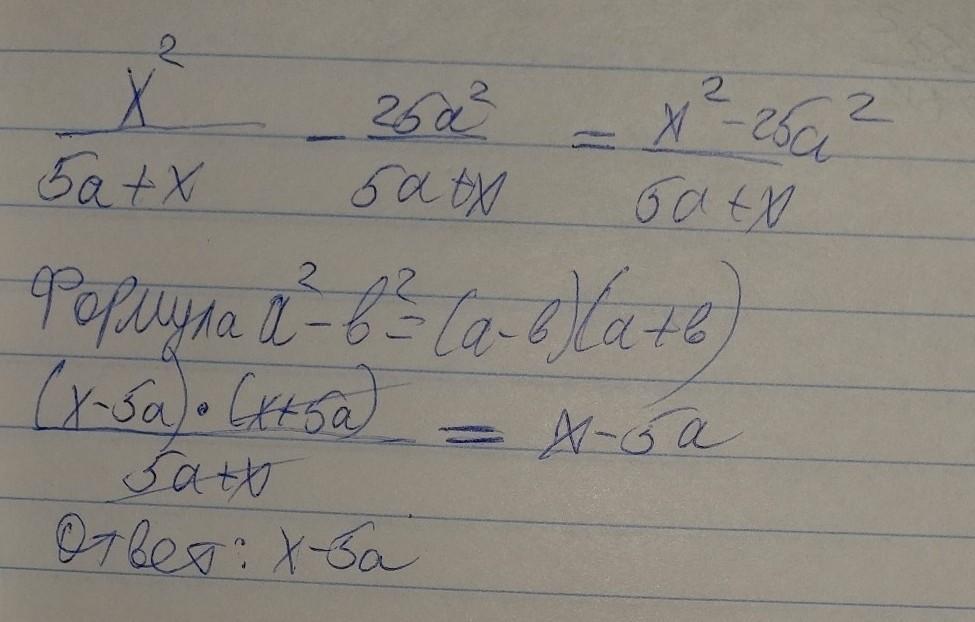 x²/(5a+x) - 25a²/(5a+x) = (x²-25a²)/(5a+x)
Формула a²-b²=(a-b)(a+b)
((x-5a)·(x+5a))/(5a+x) = x-5a
Ответ: x-5a